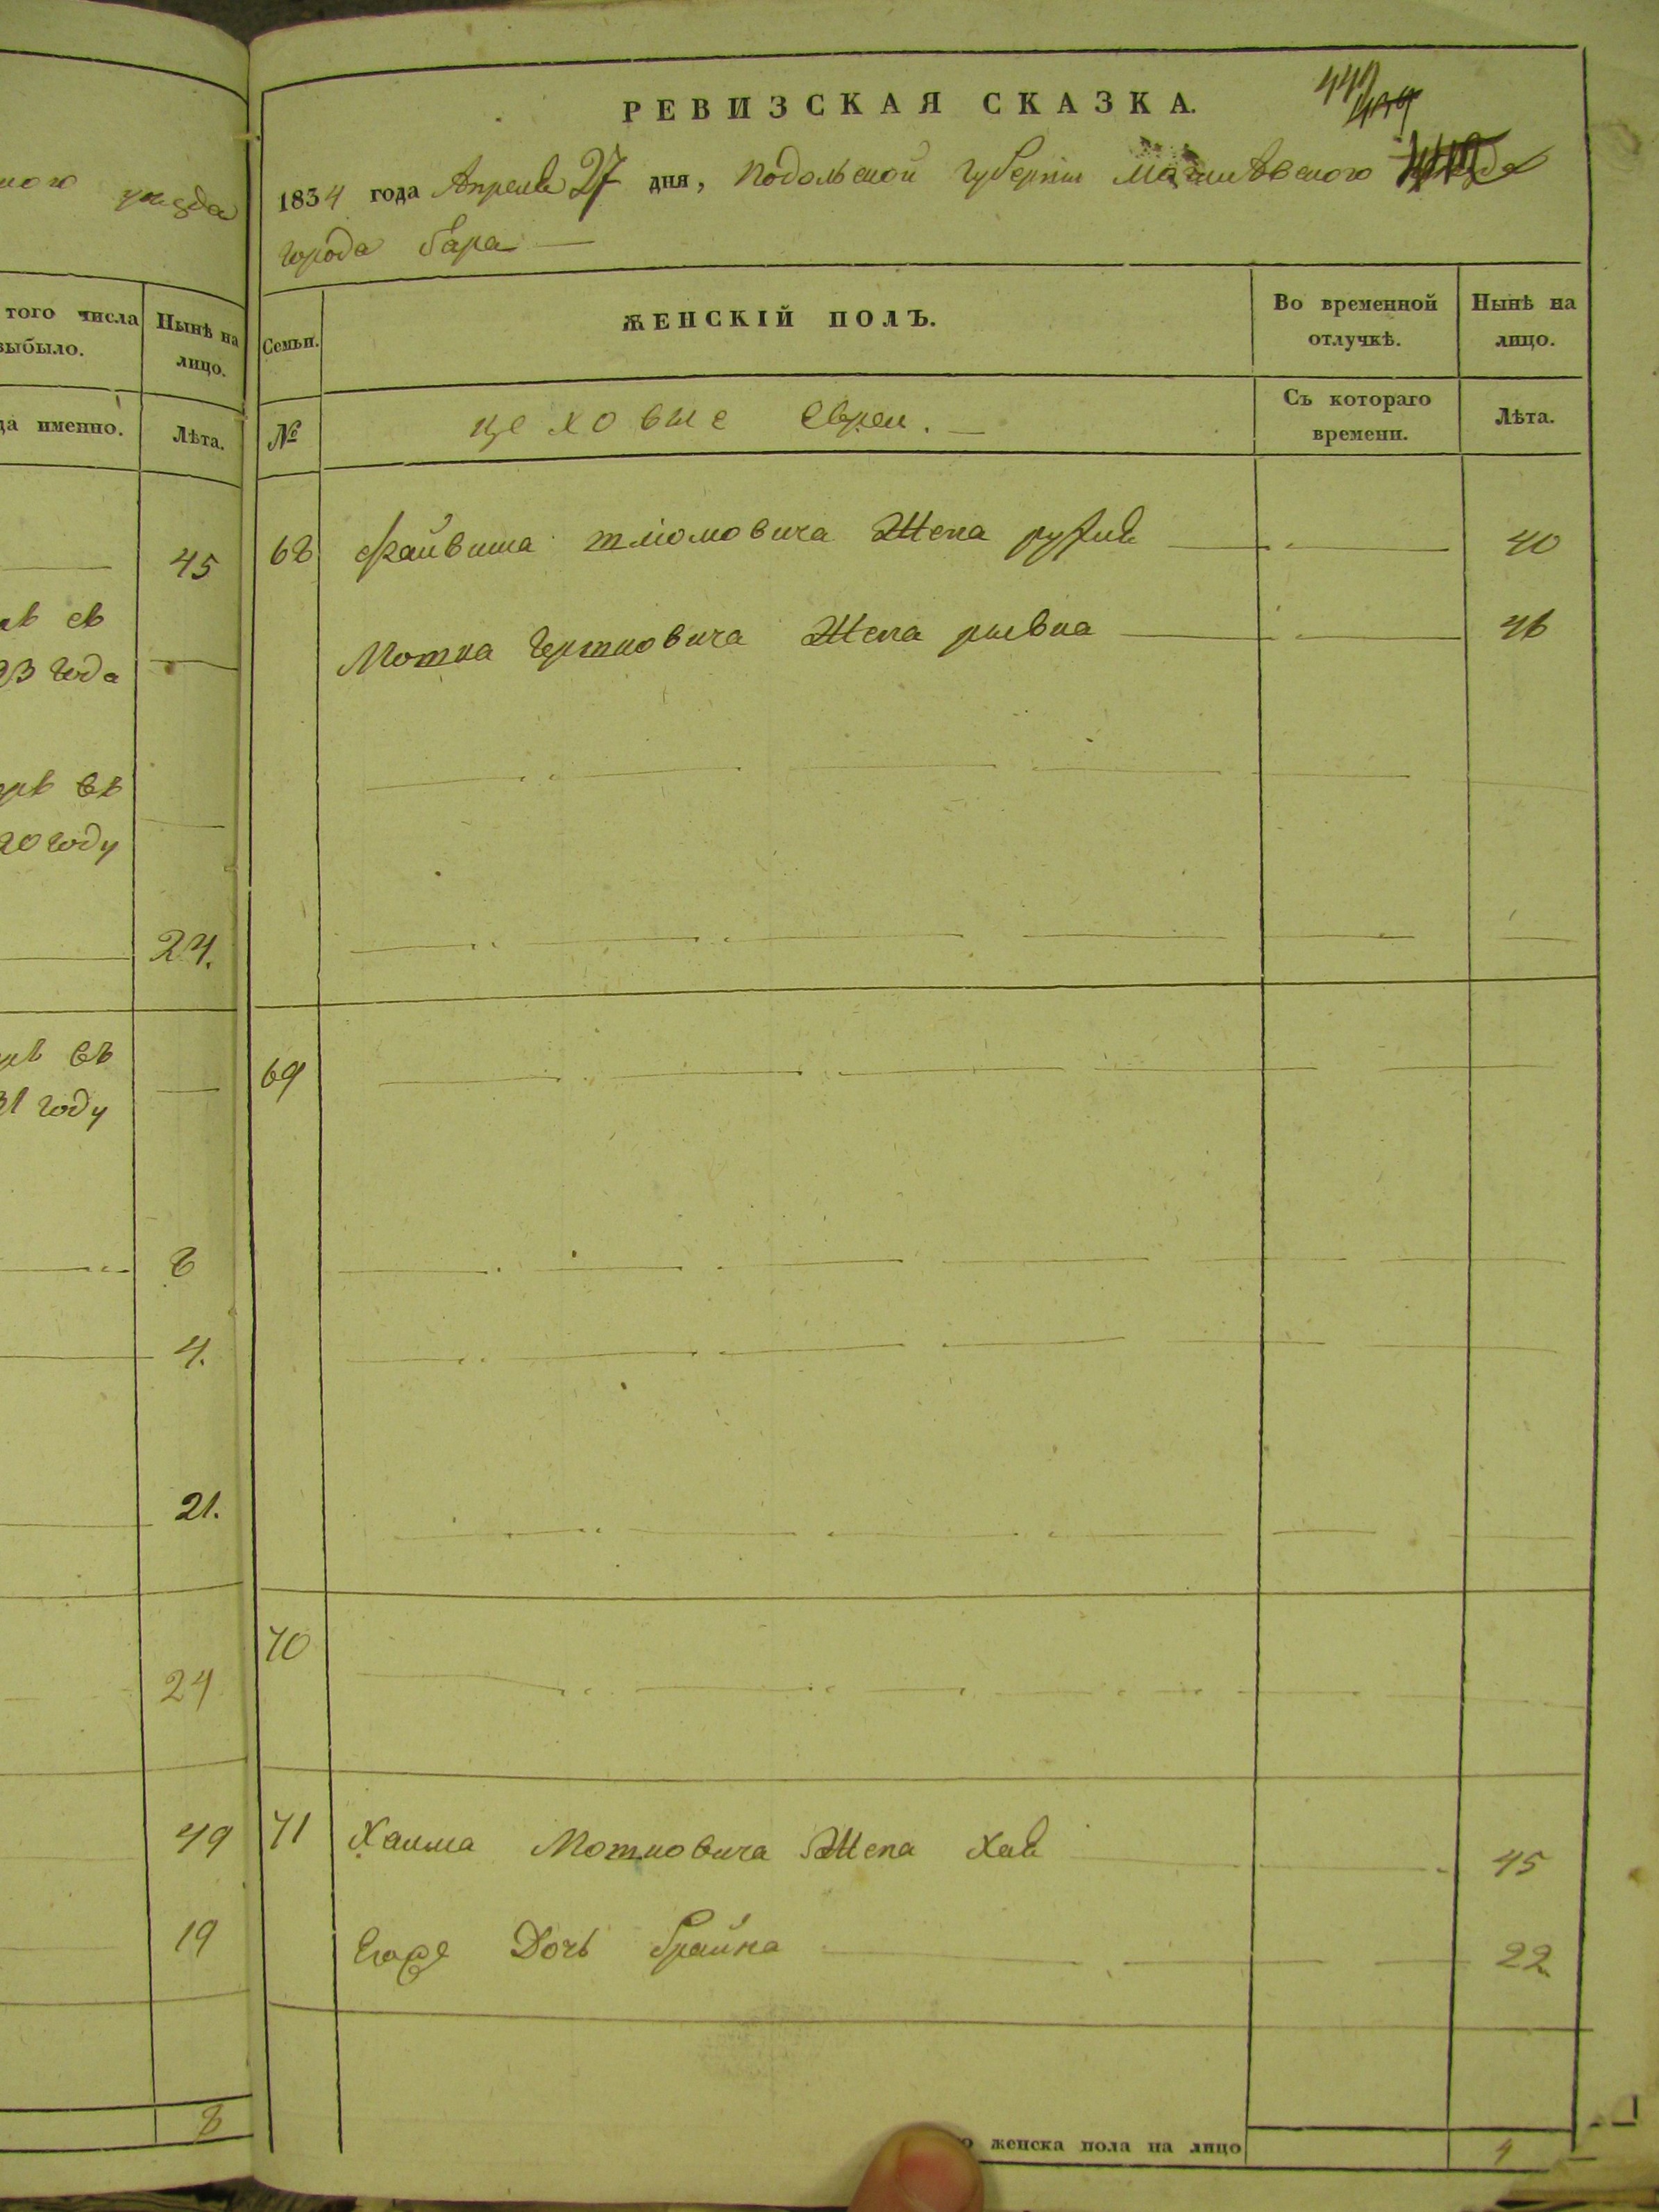 ного уезда
того числа
выбыло.
Нынѣ на
лицо.
да именно.
Лѣта.
45
въ
23 года
въ
20 году
24.
въ
31 году
8
4.
21.
24
49
19
8
449
РЕВИЗСКАЯ СКАЗКА.
1834 года Апреля 27 дня, Подольской губернiи Могилѣвского уезда
города Бара
Семьи.
ЖЕНСКІЙ ПОЛЪ.
Во временной
отлучкѣ.
Нынѣ на
лицо.
№
цеховые Евреи.
Съ котораго
времени.
Лѣта.
68 Файвиша Жена 40
Мотка Жена рывка 46
69
70
71 Хаима Мотковича Жена Хая 45
Его Дочь Брайна 22
женска пола на лицо 4